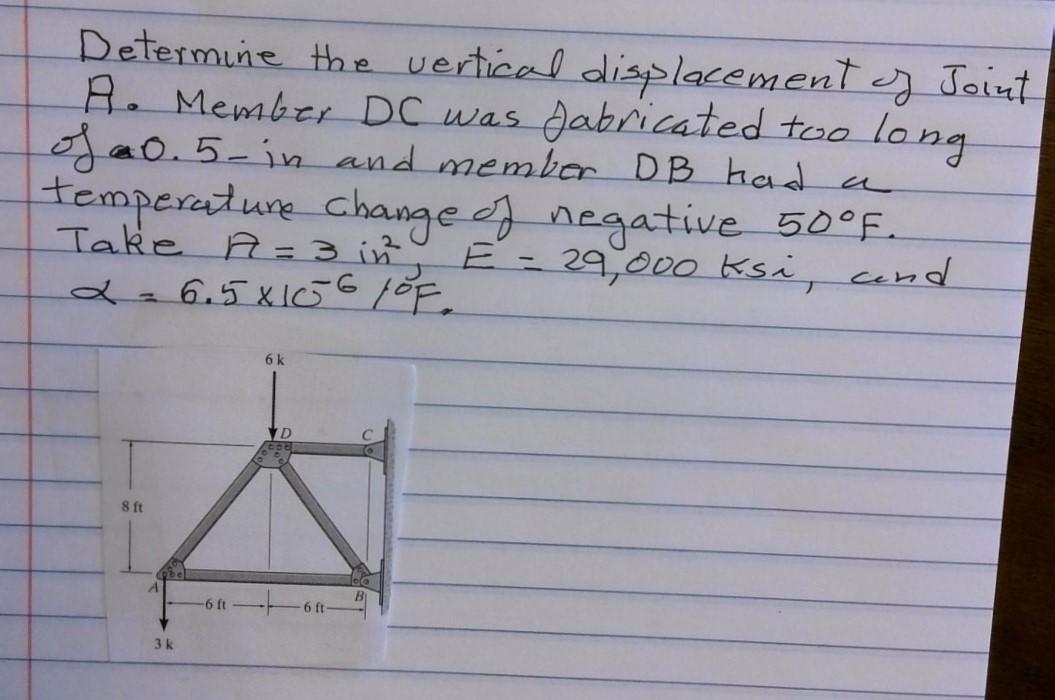 Determine the vertical displacement of Joint
A. Member DC was fabricated too long
of 0.5-in and member DB had a
temperature change of negative 50°F.
Take A = 3 in², E = 29,000 Ksi, and
α = 6.5 x10⁻⁶ /°F.
6 k
D C
8 ft
A B
6 ft 6 ft
3 k